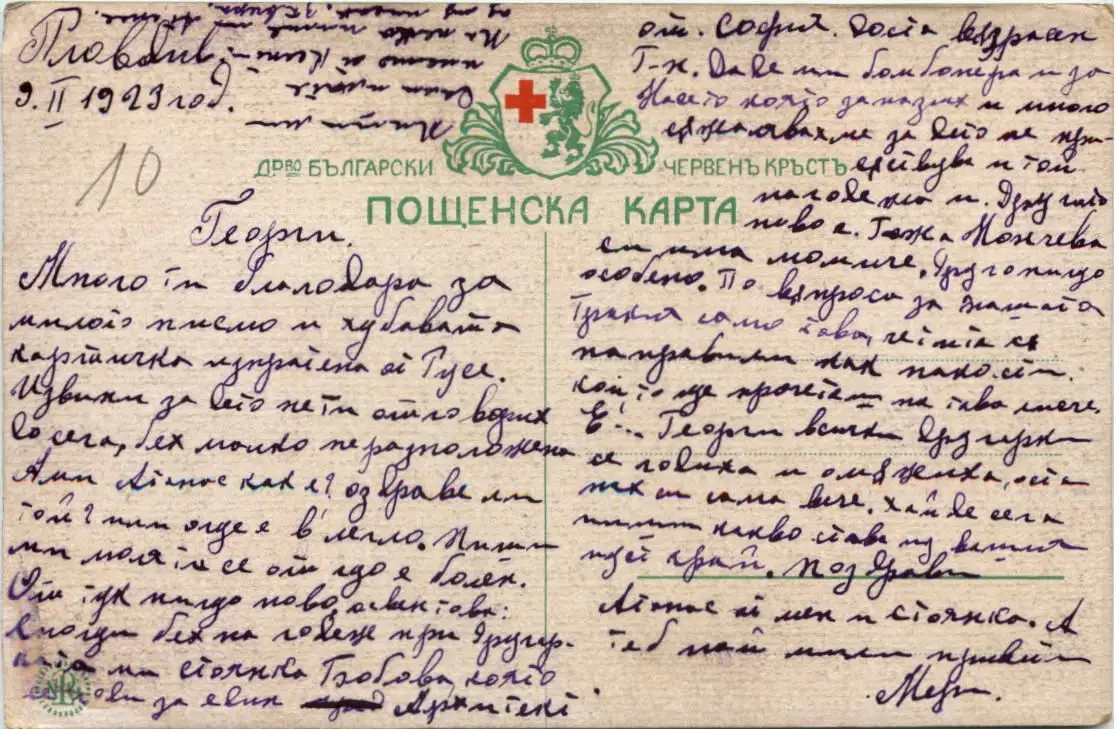 Пловдив.
9. II 1923 год.
10
ДРВО БЪЛГАРСКИ ЧЕРВЕНЪ КРЪСТЪ
ПОЩЕНСКА КАРТА
Георги.
Много ти благодара за
милото писмо и хубавата
картичка изпратена от Русе.
Извини за дето не ти отговорих
досега, бех молко неразположена
Ами Атанас как е? оздраве ли
той? или още е в легло. Пиши
ми моля те от що е болен.
От тук нищо ново, освен това:
Снощи бех на годеж при другар-
ката ми Стоянка Бобова която
се годи за един Архитект
от. София. Доста възрасен
Г-н. Даде ми бомбонера и за
Насето която запазих и много
съжалявахме за дето не при-
съствува и той
на годежа и. Другото
ново е. Гожа Мончева
си има момиче. Друго нищо
особено. По въпроса за нашата
Тракия само това, че тя са
направили как пакости.
които ще прочетеш на това
Е!... Георги всички другарки
се годиха и омъжиха, оста
нах си сама вече. Хайде сега
пиши какво става из вашия
край. Поздрави
Атанас от мен и Стоянка. А
теб най мили привети
Мери.